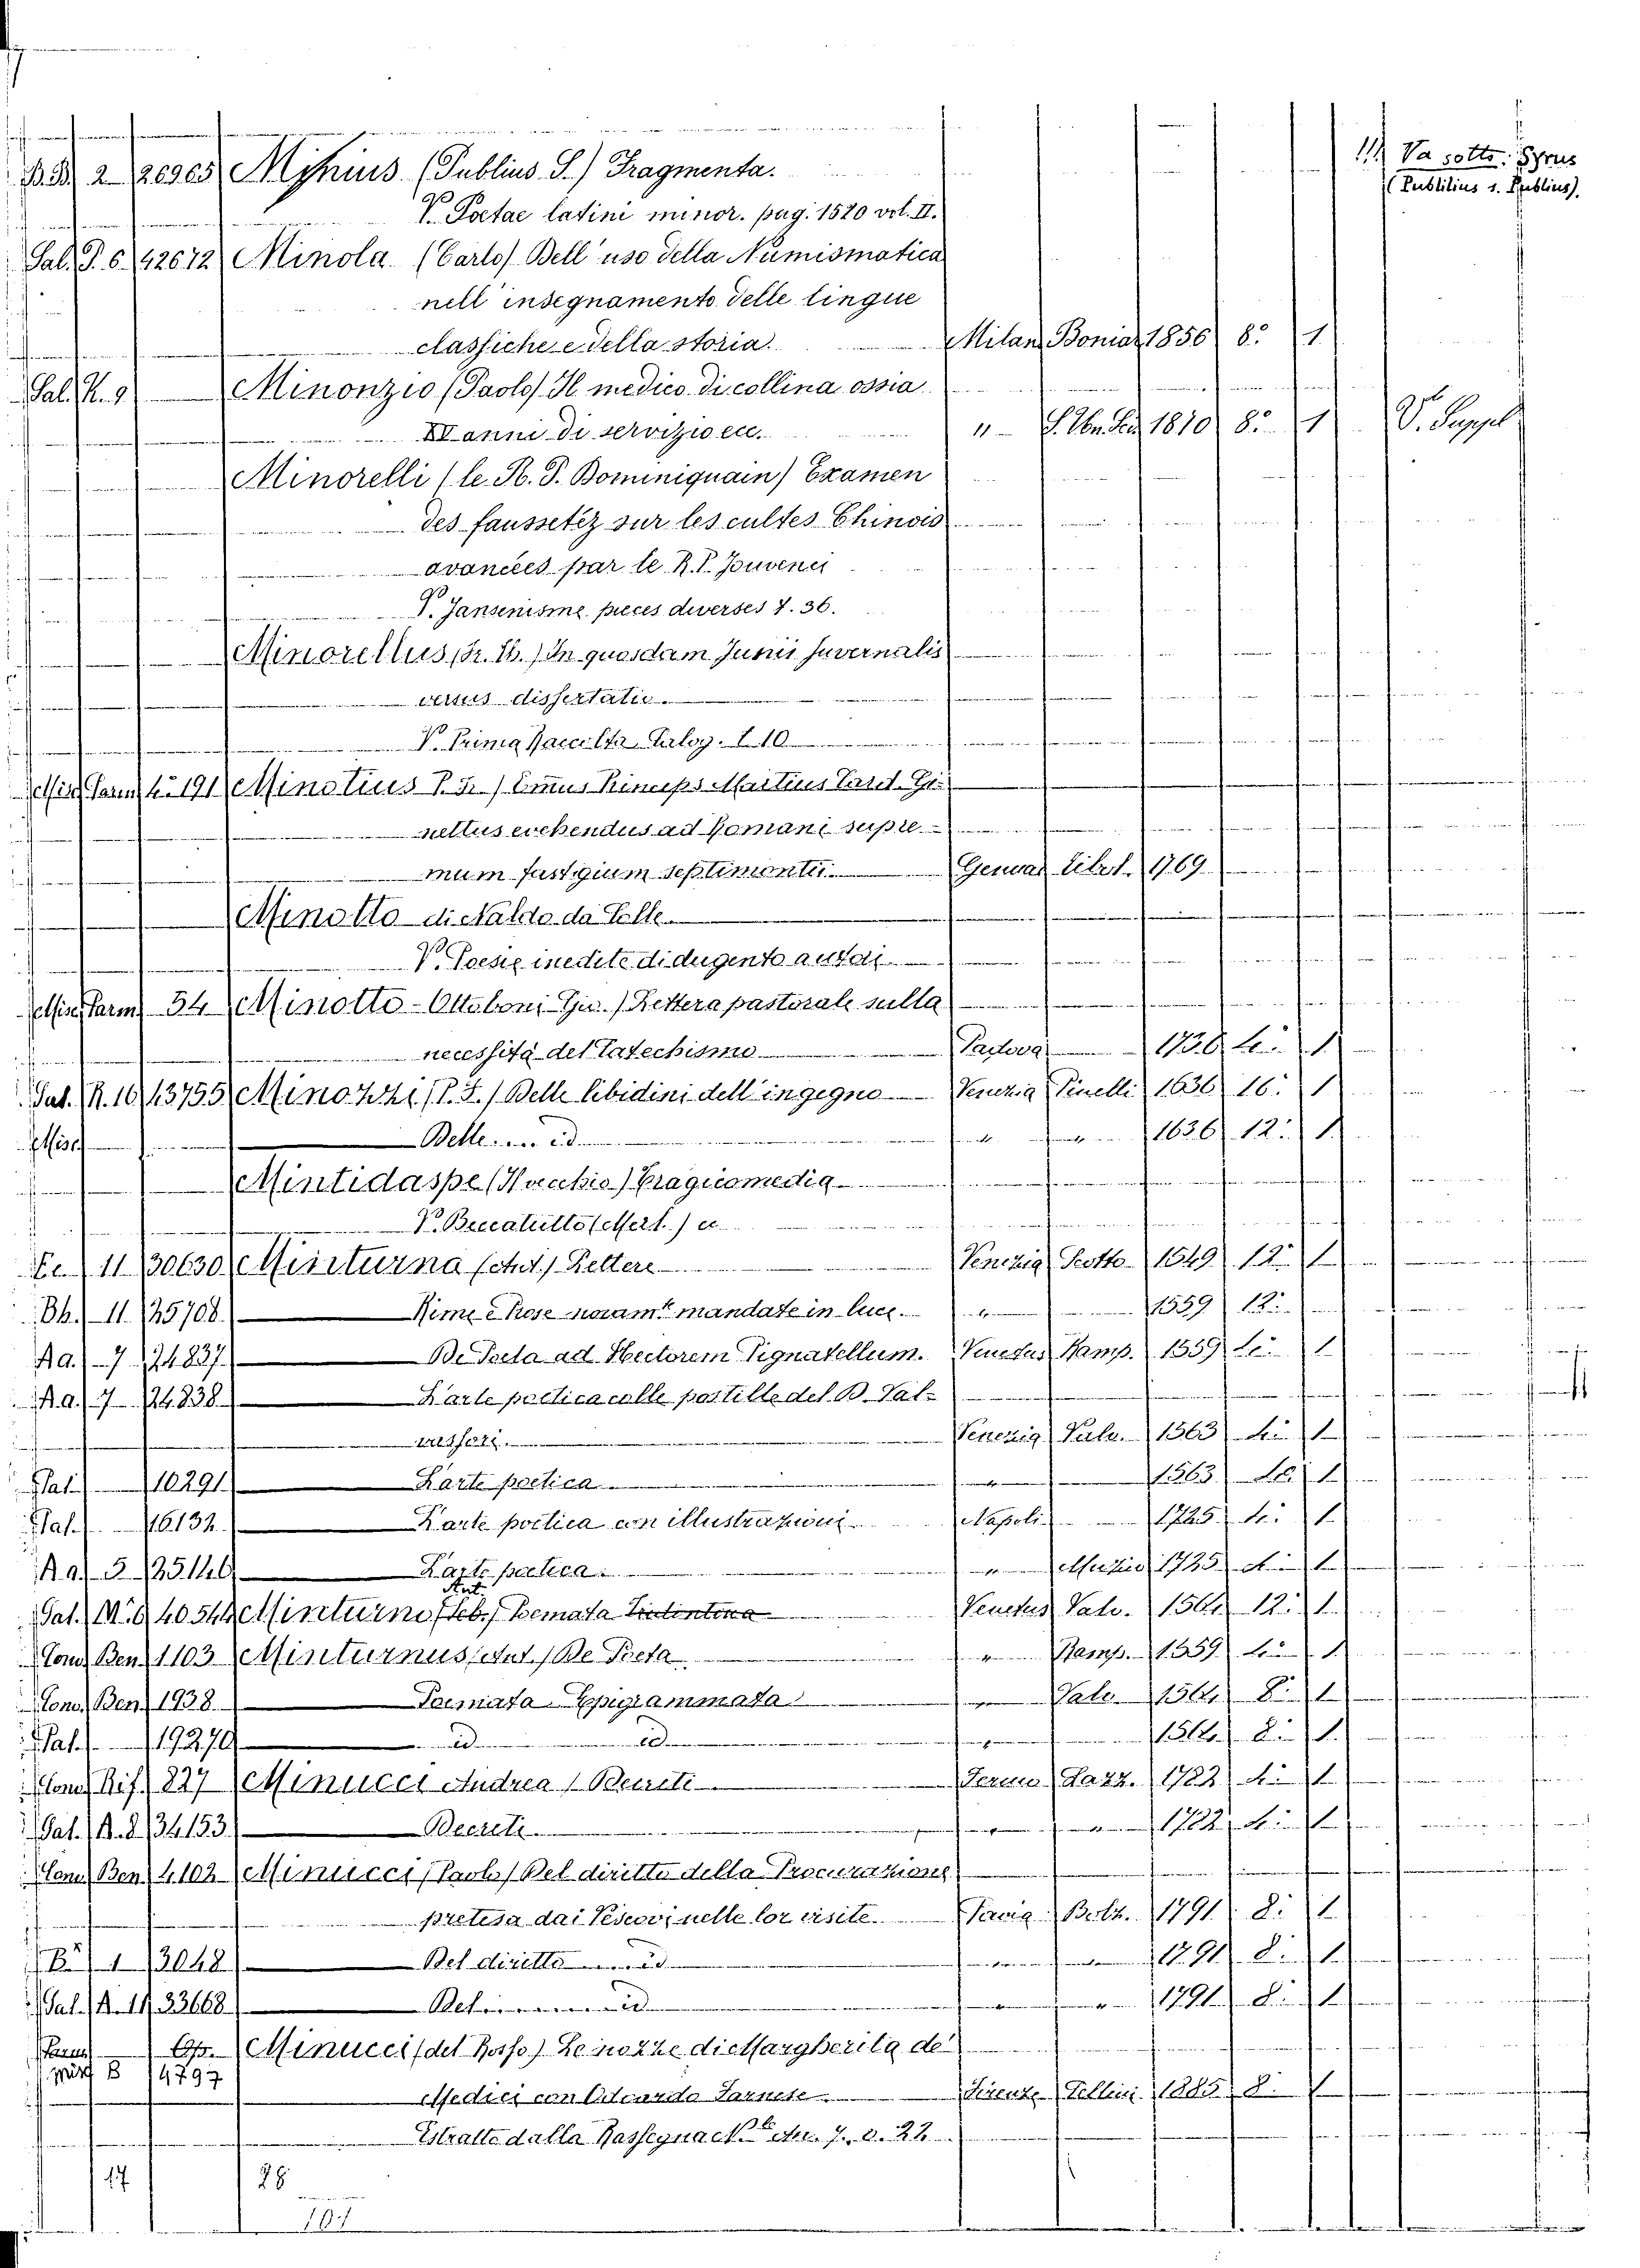 2 20965 Mimus (Publius S.) Fragmenta. 11) Va sotto: Syrus
(Publilius s. Publius).
V. Poetae latini minor. pag. 1520 vol. II.
Sal. P. 6. 42672 Minola (Carlo) Dell'uso della Numismatica
nell'insegnamento delle lingue
classiche e della storia. Milan Boniar 1856 8.° 1
Sal. K. 9 Minonzio (Paolo) Il medico di collina ossia
anni di servizio ecc. " 1810 8.° 1 V. Suppl
Minorelli (le R. P. Dominiquain) Examen
des faussetez sur les cultes Chinois
avancées par le R. P. Jouvenci
V. Jansenisme pieces diverses T. 36.
Minorellus (Fr. Th.) In quosdam Junii Juvernalis
versus dissertatio.
V. Prima Raccolta Calog. t. 10
Misc. Parm 4.° 191 Minotius Emus Princeps Martius Card. Gi-
nettus evehendus ad Romani supre-
mum fastigium septimontii. Genuae 1769
Minotto di Naldo da Colle
V. Poesie inedite di dugento autori
Misc. Parm 34 Minotto-Ottoboni Gio.) Lettera pastorale sulla
necessità del Catechismo Padova 4.° 1
Sal. R. 10 13755 Minozzi (P. F.) Delle libidini dell'ingegno Venezia Pinelli 1636 16.° 1
Misc. Delle .... id. " " 1636 12.° 1
Mintidaspe (Il vecchio) Tragicomedia
V. Beccatutto (Mert.) ec
11 30630 Minturna (Ant.) Lettere Venezia Scotto 1549 12.° 1
Bb. 11 25708 Rime e Prose novam.te mandate in luce. " 1559 12.°
Aa. 7 24837 De Poeta ad Hectorem Pignatellum. Venetus Ramp. 1559 4.° 1
Aa. 7 24838 L'arte poetica colle postille del D. Val-
vassori. Venezia Valv. 1563 4.° 1
Pal. 10291 L'arte poetica " 1563 4.° 1
Pal. 16132 L'arte poetica con illustrazioni Napoli 1725 4.° 1
Aa. 5 25146 L'arte poetica. " Muzio 1725 4.° 1
Sal. M. 9 40544 Minturno (Seb.) Ant. Poemata Tridentina Venetus Valv. 1564 12.° 1
Con. Ben. 1103 Minturnus (Ant.) De Poeta " Ramp. 1559 4.° 1
Con. Ben. 1938 Poemata Epigrammata " Valv. 1564 8.° 1
Pal. 19270 id id " 1564 8.° 1
Con. Rif. 827 Minucci Andrea) Decreti Fermo Lazz. 1782 4.° 1
Sal. A. 8 34153 Decreti " " 1782 4.° 1
Con. Ben. 4102 Minucci (Paolo) Del diritto della Procurazione
pretesa dai Vescovi nelle lor visite. Pavia Bolz. 1791 8.° 1
1 3048 Del diritto .... id " " 1791 8.° 1
Sal. A. 11 33668 Del ........ id " " 1791 8.° 1
Parm. Op. Minucci (del Rosso) Le nozze di Margherita de'
misc B 4797
Medici con Odoardo Farnese Firenze Cellini 1885 8.° 1
Estratto dalla Rassegna N.le An. 7. v. 22
17 28
107